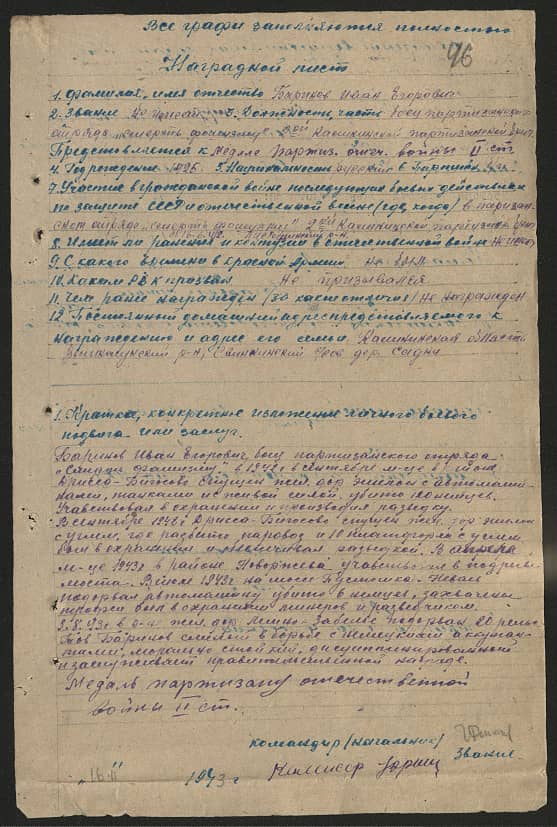 Все графы заполняются полностью
96
Наградной лист
1. Фамилия, имя отчество Баринов Иван Егорович
2. Звание не имеет 3. Должность, часть боец партизанского
отряда "Смерть фашизму" Калининской партизанской бриг.
Представляется к медале Партиз. отеч. войны II ст
4. Год рождения 5. Национальность русский 6. Партийн.
7. Участие в гражданской войне последующих боевых действиях
по защите СССР и отечественной войне (где, когда) в партизан
ском отряде "Смерть фашизму" Калининской партизанской бриг.
8. Имеет ли ранения и контузии в отечественной войне не имеет
9. С какого времени в красной армии не был
10. Каким РВК призван Не призывался
11. Чем ранее награжден (за какие отличия) не награжден
12. Постоянный домашний адрес представляемого к
награждению и адрес его семьи. Калининская область
р-н, с/сов дер.
1. Краткое, конкретное изложение личного боевого
подвига или заслуг.
Баринов Иван Егорович, боец партизанского отряда
"Смерть фашизму" в 1942г в сентябре м-це в
Дрисса-Бигосово спущен жел. дор эшелон с автомаши-
нами, танками и с живой силой, убито немцев.
Участвовал в охранении и производил разведку.
В сентябре 1942г Дрисса-Бигосово спущен жел. дор эшелон
с углем, где разбит паровоз и 10 платформ с углем
был в охранении и разведкой. В апреле
м-це 1943г в районе Новоржева участвовал в подрыве
моста. В июле 1943г на шоссе Пустошка-Невель
подорвал автомашину убито немцев, захвачены
трофеи был в охранении минеров и разведчиком.
8.43г в р-н жел. дор. подорвал 20 рельс
Тов Баринов смелый в борьбе с немецкими оккупан-
тами, морально стойкий, дисциплинированный
и заслуживает правительственной награде.
Медаль партизану отечественной
войны II ст.
командир (начальник)
звание
Комиссар
"16" 1943 г